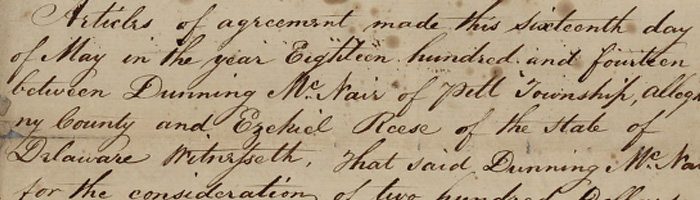 Articles of agreement made this sixteenth day
of May in the year Eighteen hundred and fourteen
between Dunning McNair of Pitt Township, Allegh
ny County and Ezekiel Reese of the state of
Delaware Witnesseth, That said Dunning McNa
for the consideration of two hundred Dollars